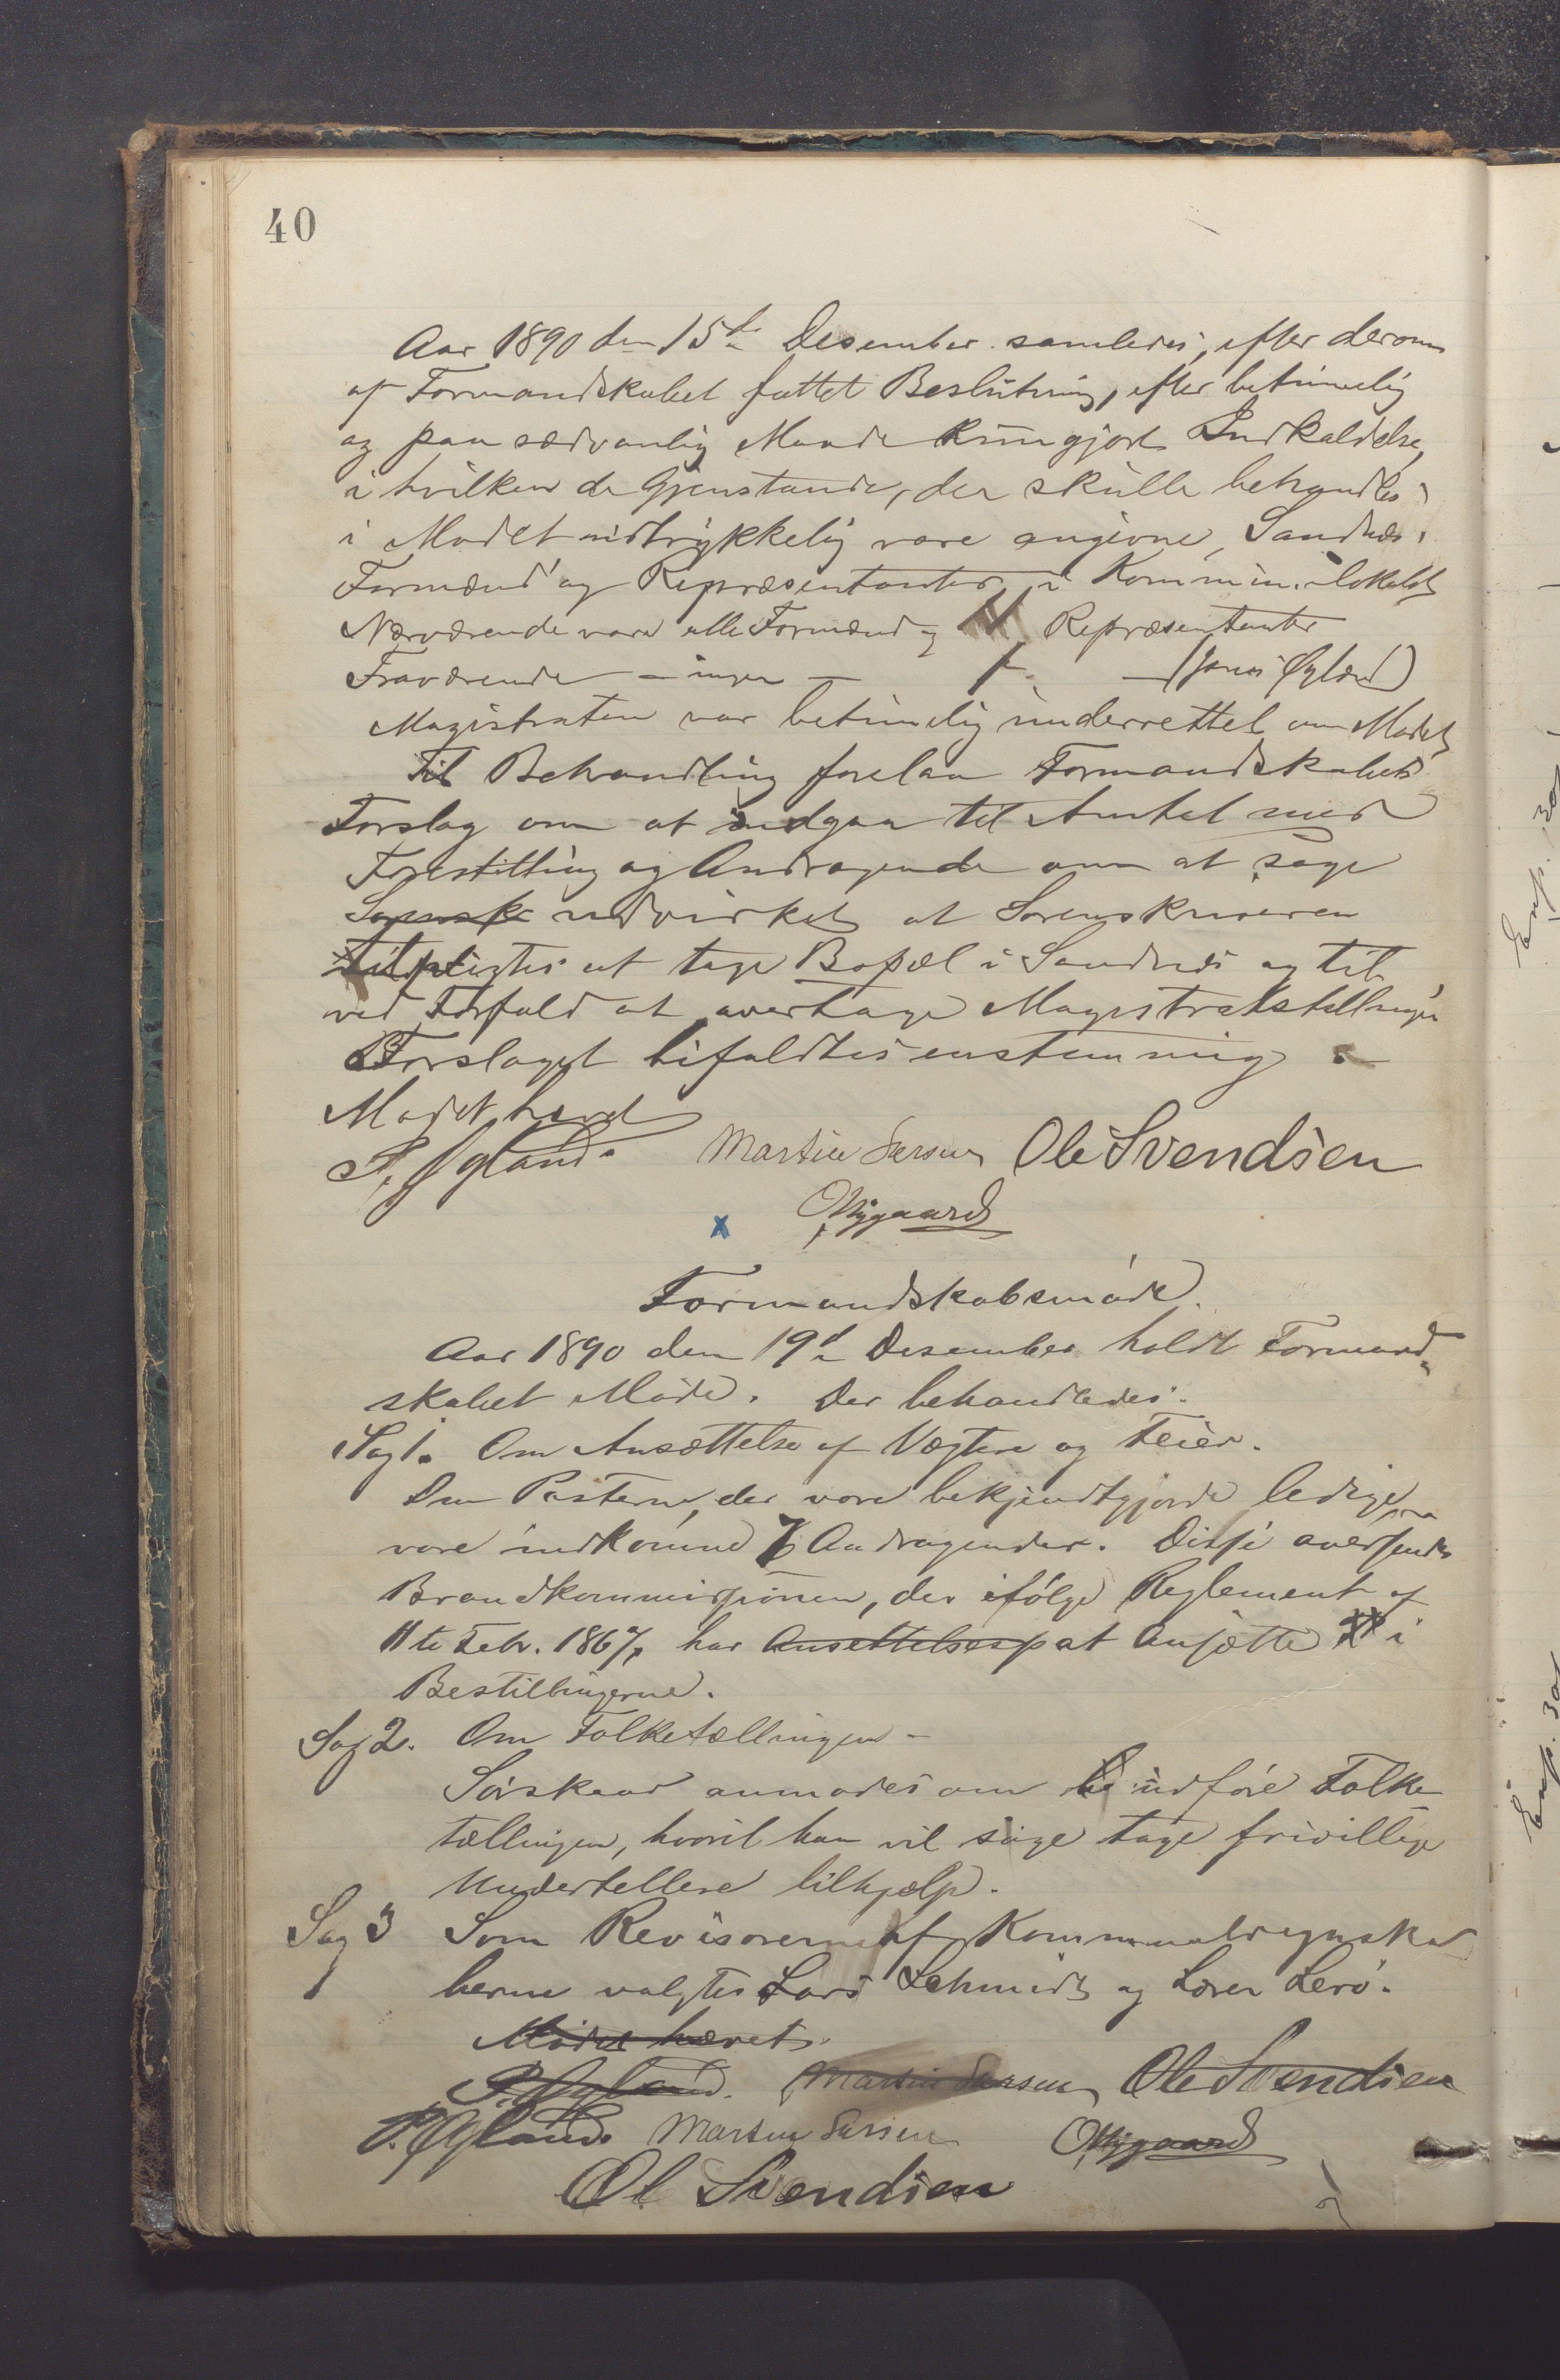 40
Aar 1890 den 15de Desember samledes, efter derom
af Formandskabet fattet Beslutning, efter betimelig
og paa sædvanlig Maade kungjort Indkaldelse,
i hvilken de Gjenstande, der skulle behandles
i Mødet udtrykkelig vare angivne, Sandnes
Formænd og Repræsentanter i Kommunelokalet
Nærværende vare alle Formænd og Repræsentanter
Fraværende – ingen – 1 – (Jonas Øglænd)
Magistraten var betimelig underrettet om Mødet
Til Behandling forelaa Formandskabets
Forslag om at indgaa til Amtet med
Forestilling og Andragende om at søge
udvirket at Sorenskriveren
tilpligtes at tage Bopæl i Sandnes og til
ved Forfald at overtage Magistratstillingen
Forslaget bifaldtes enstemmig
Mødet hævet
Øgland. Martin Ole Svendsen
O Nygaard
x
Formandskabsmøde.
Aar 1890 den 19de Desember holdt Formand
skabet Møde. Der behandledes:
Sag 1. Om Ansættelse af Vægtere og Feier.
Om Posterne, der vare bekjendtgjorde ledige,
vare indkomne Andragender. Disse oversendes
Brandkommissionen, der ifølge Reglement af
11te Febr. 1867, har Ansettelses at Ansætte i
Bestillingerne.
Sag 2. Om Folketællingen –
Sørskaar anmodes om at udføre Folke
tællingen, hvortil han vil søge tage frivillige
Undertellere tilhjælp.
Sag 3 Som Revisorerne af Kommuneregnska
berne valgtes Lars Schmidt og Lærer Lerø.
Mødet hævet.
Øgland. Martin Ole Svendsen
Øgland. Martin O Nygaard
Ole Svendsen